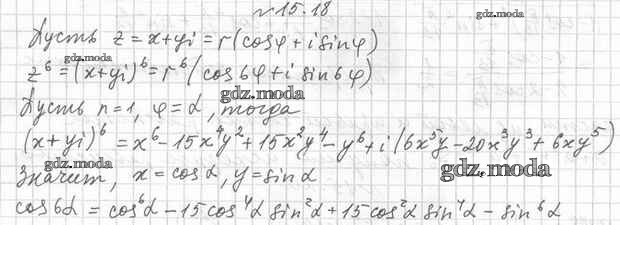 №15.18
gdz.moda
Пусть z = x+yi = r(cosφ + i sinφ)
gdz.moda
z⁶ = (x+yi)⁶ = r⁶(cos6φ + i sin6φ)
gdz.moda
Пусть r=1, φ=α, тогда
(x+yi)⁶ = x⁶ - 15x⁴y² + 15x²y⁴ - y⁶ + i(6x⁵y - 20x³y³ + 6xy⁵)
gdz.moda
gdz.moda
Значит, x = cosα, y = sinα
cos6α = cos⁶α - 15cos⁴α sin²α + 15cos²α sin⁴α - sin⁶α